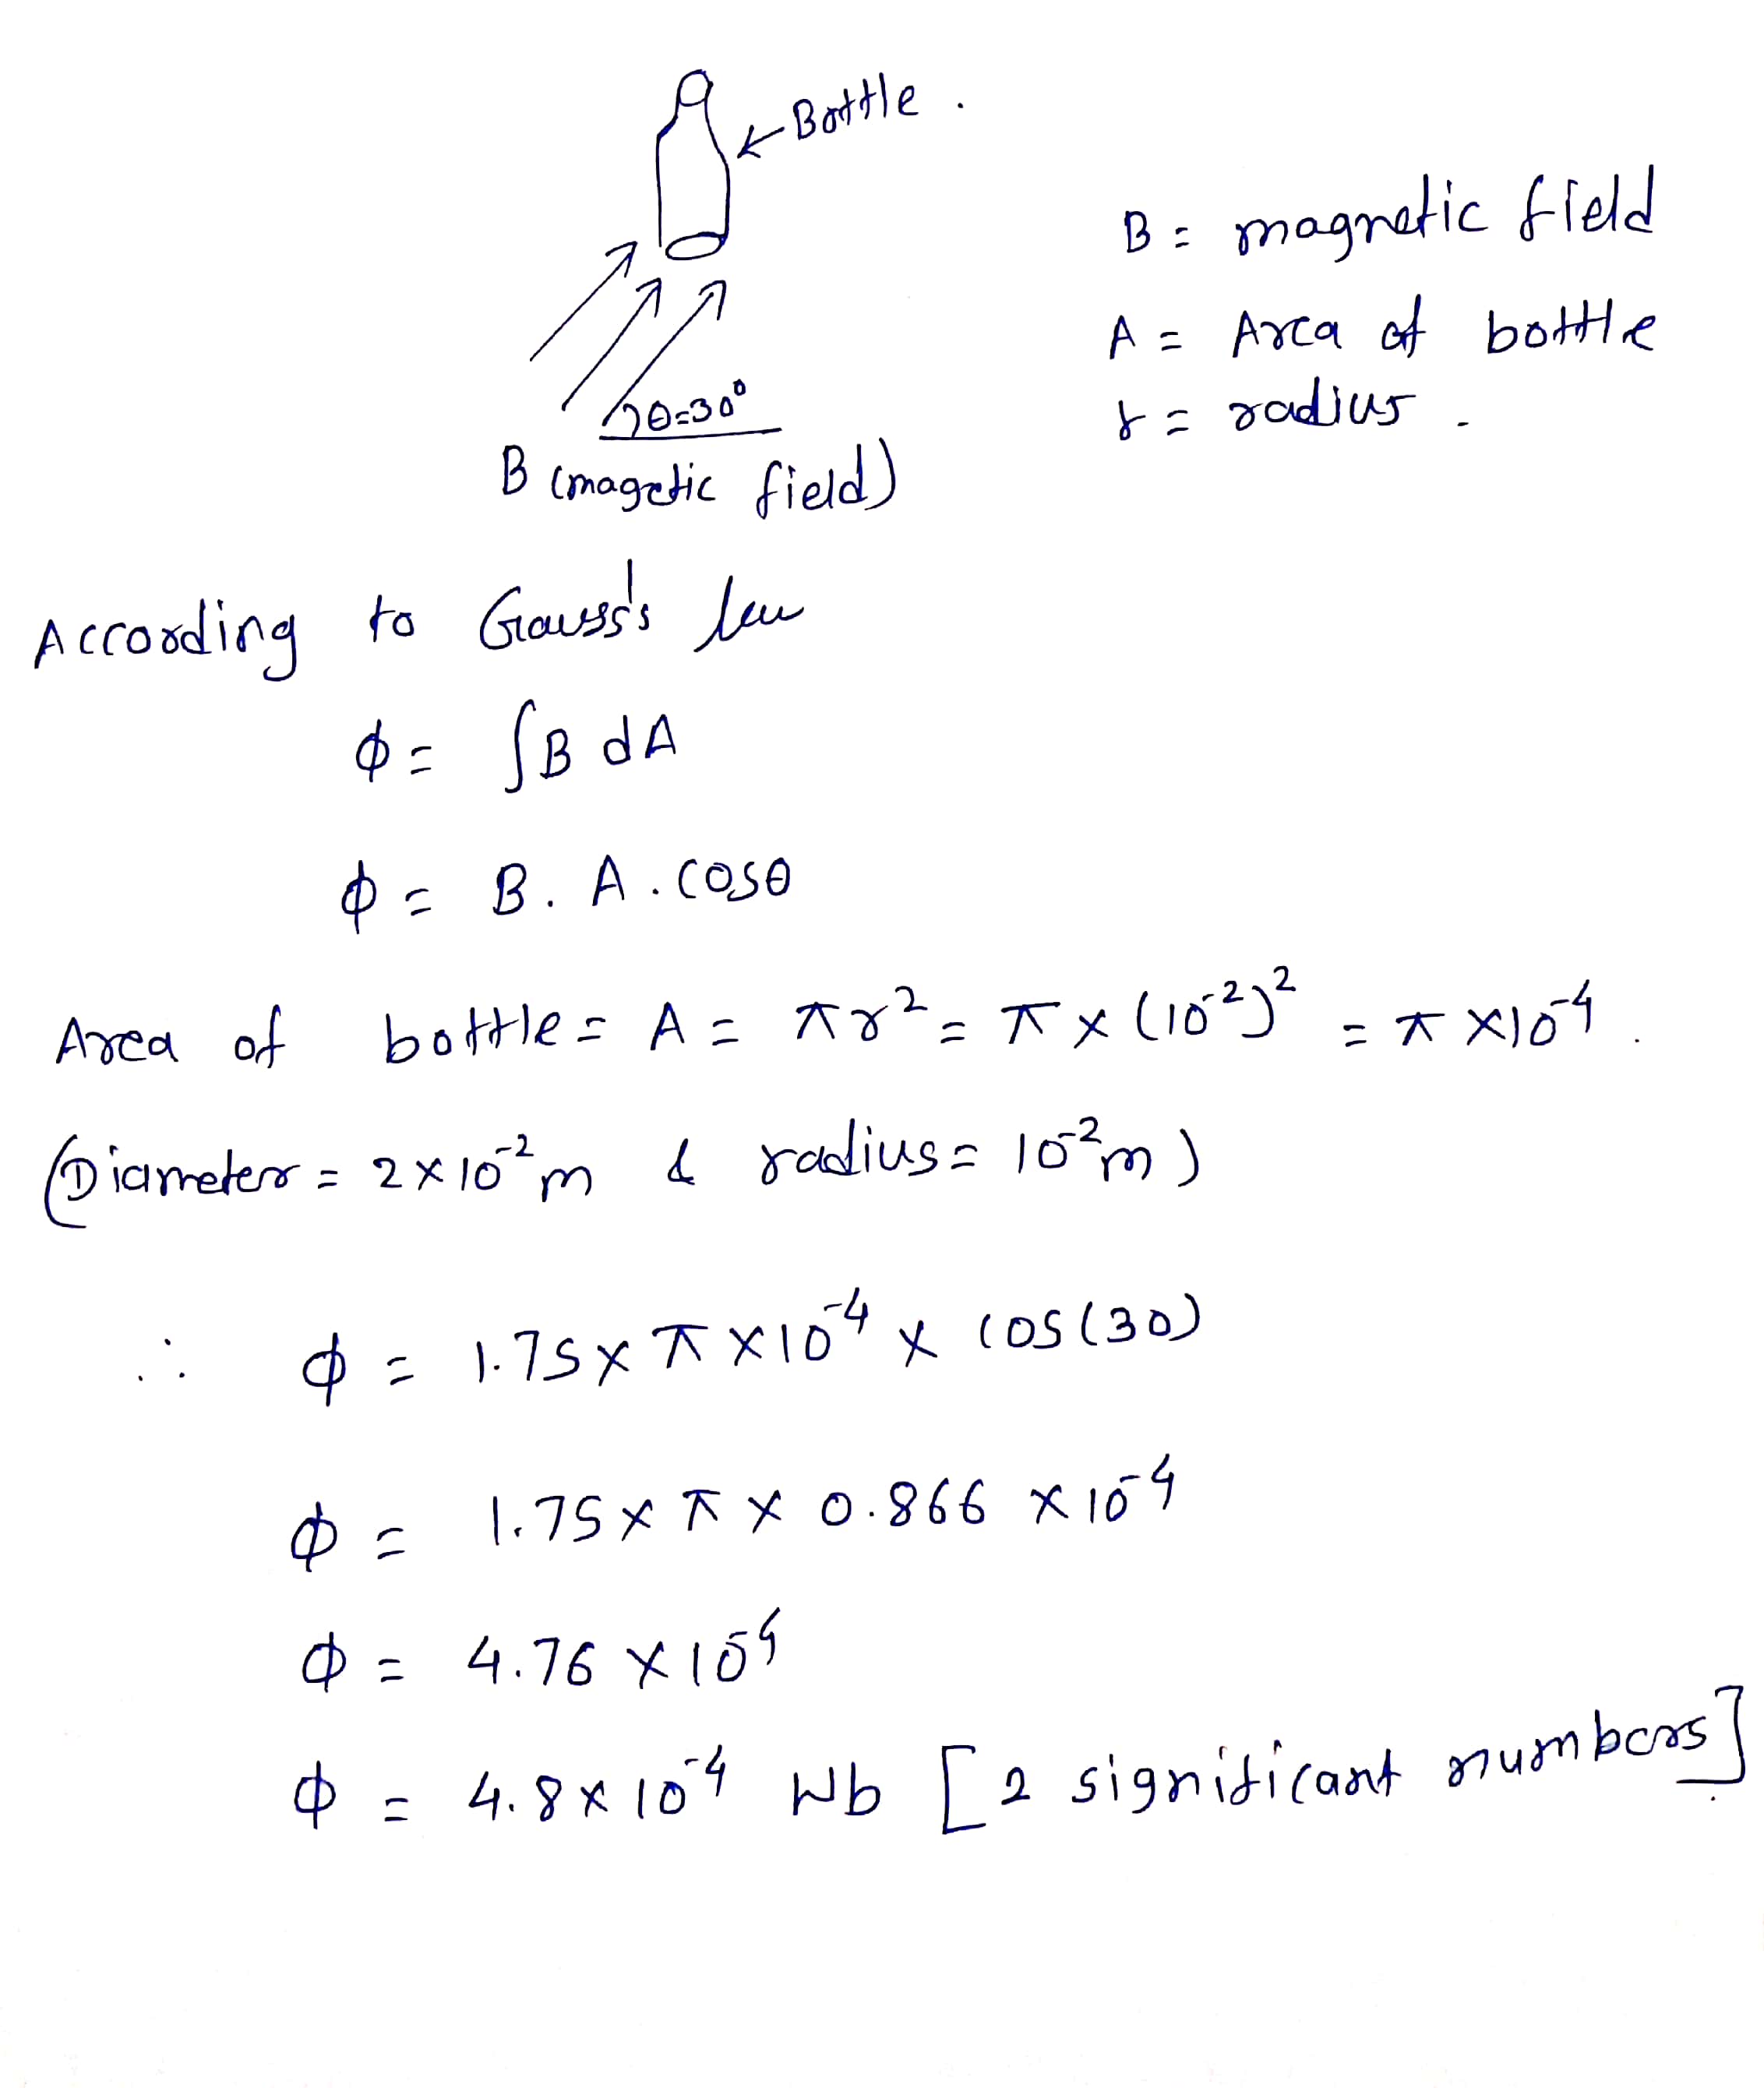 ← Bottle .
B = magnetic field
A = Area of bottle
r = radius .
θ=30°
B (magetic field)
According to Gauss's law
ϕ = ∫B dA
ϕ = B. A . cosθ
Area of bottle = A = πr² = π × (10⁻²)² = π ×10⁻⁴ .
(Diameter = 2×10⁻² m & radius = 10⁻² m )
∴ ϕ = 1.75 × π ×10⁻⁴ × cos(30)
ϕ = 1.75 × π × 0.866 ×10⁻⁴
ϕ = 4.76 ×10⁻⁴
ϕ = 4.8×10⁻⁴ Wb [ 2 significant numbers]